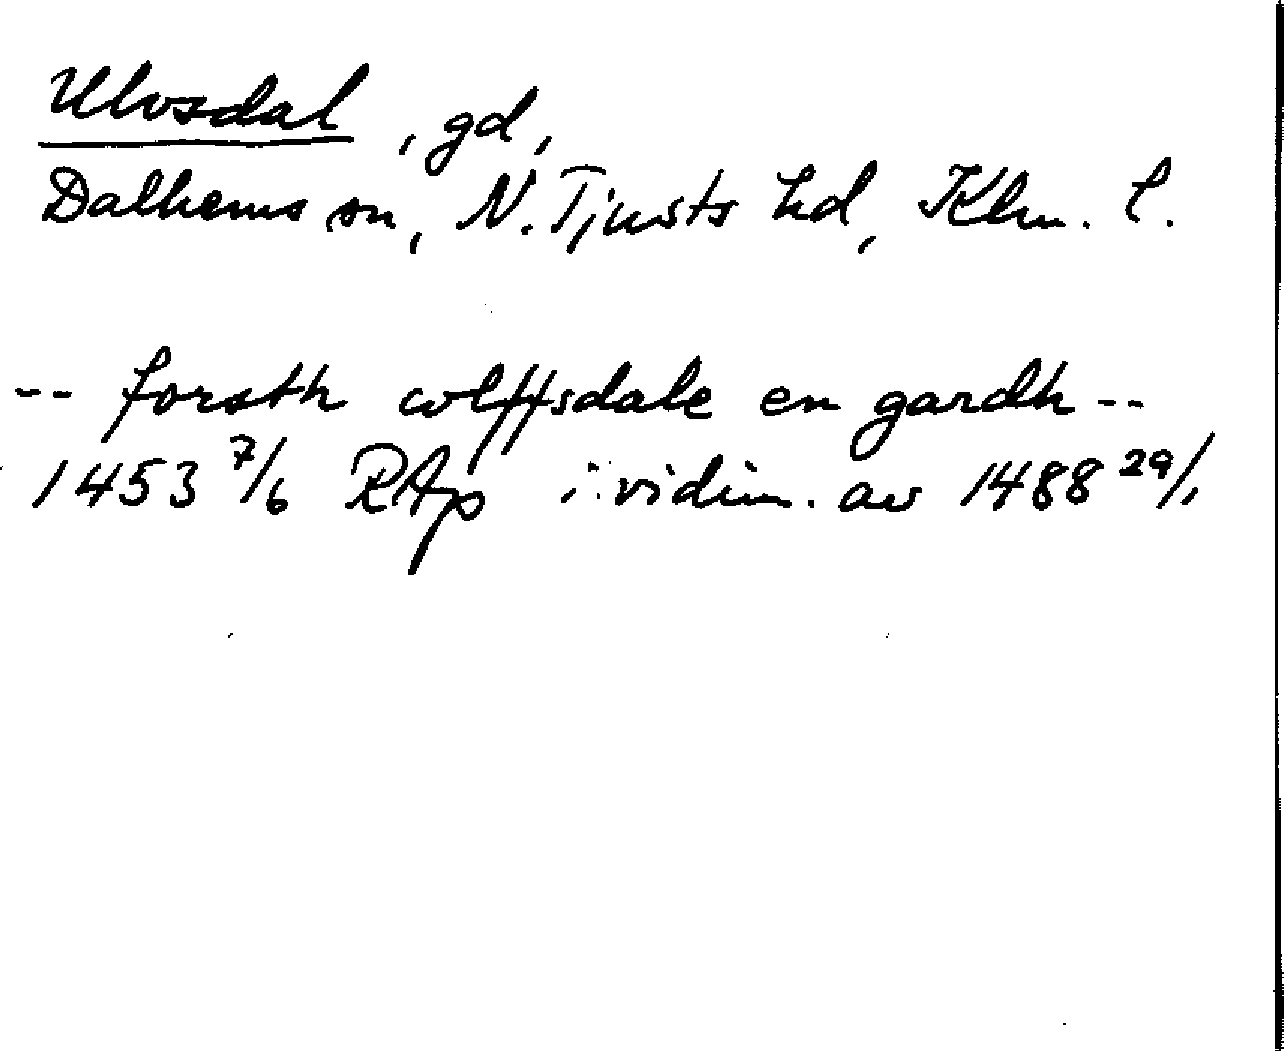 Ulvsdal, gd,
Dalhems sn, N. Tjusts hd, Klm. l.
-- forsth wlffsdale en gardh --
1453 7/6 RAp i vidim. av 1488 29/1